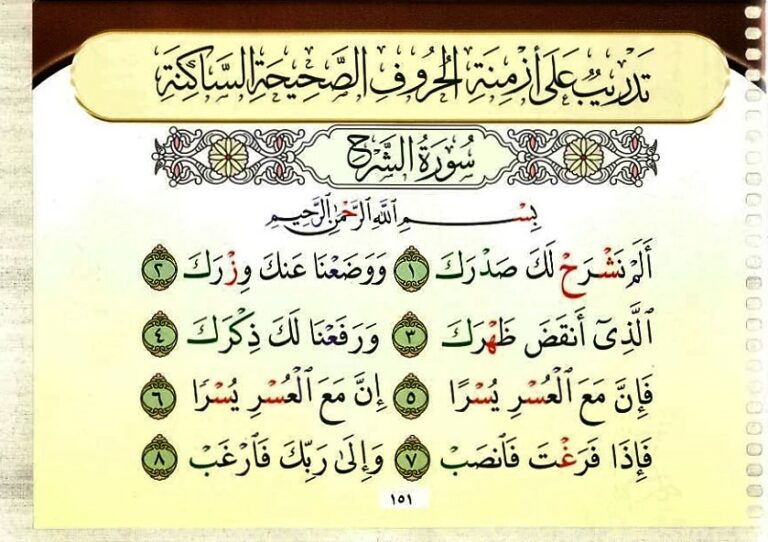 تَدْرِيبٌ عَلَى أَزْمِنَةِ الْحُرُوفِ الصَّحِيحَةِ السَّاكِنَةِ
سُورَةُ الشَّرْحِ
بِسْمِ اللَّهِ الرَّحْمَٰنِ الرَّحِيمِ
أَلَمْ نَشْرَحْ لَكَ صَدْرَكَ ١ وَوَضَعْنَا عَنكَ وِزْرَكَ ٢
ٱلَّذِىٓ أَنقَضَ ظَهْرَكَ ٣ وَرَفَعْنَا لَكَ ذِكْرَكَ ٤
فَإِنَّ مَعَ ٱلْعُسْرِ يُسْرًا ٥ إِنَّ مَعَ ٱلْعُسْرِ يُسْرًا ٦
فَإِذَا فَرَغْتَ فَٱنصَبْ ٧ وَإِلَىٰ رَبِّكَ فَٱرْغَب ٨
١٥١